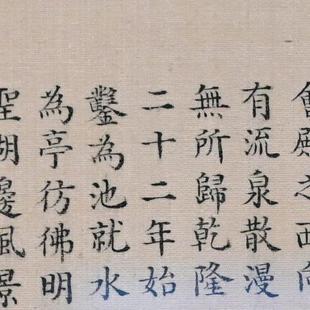 會殿之西向
有流泉散漫
無所歸乾隆
二十二年始
鑿為池就水
為亭彷彿明
聖湖邊風景